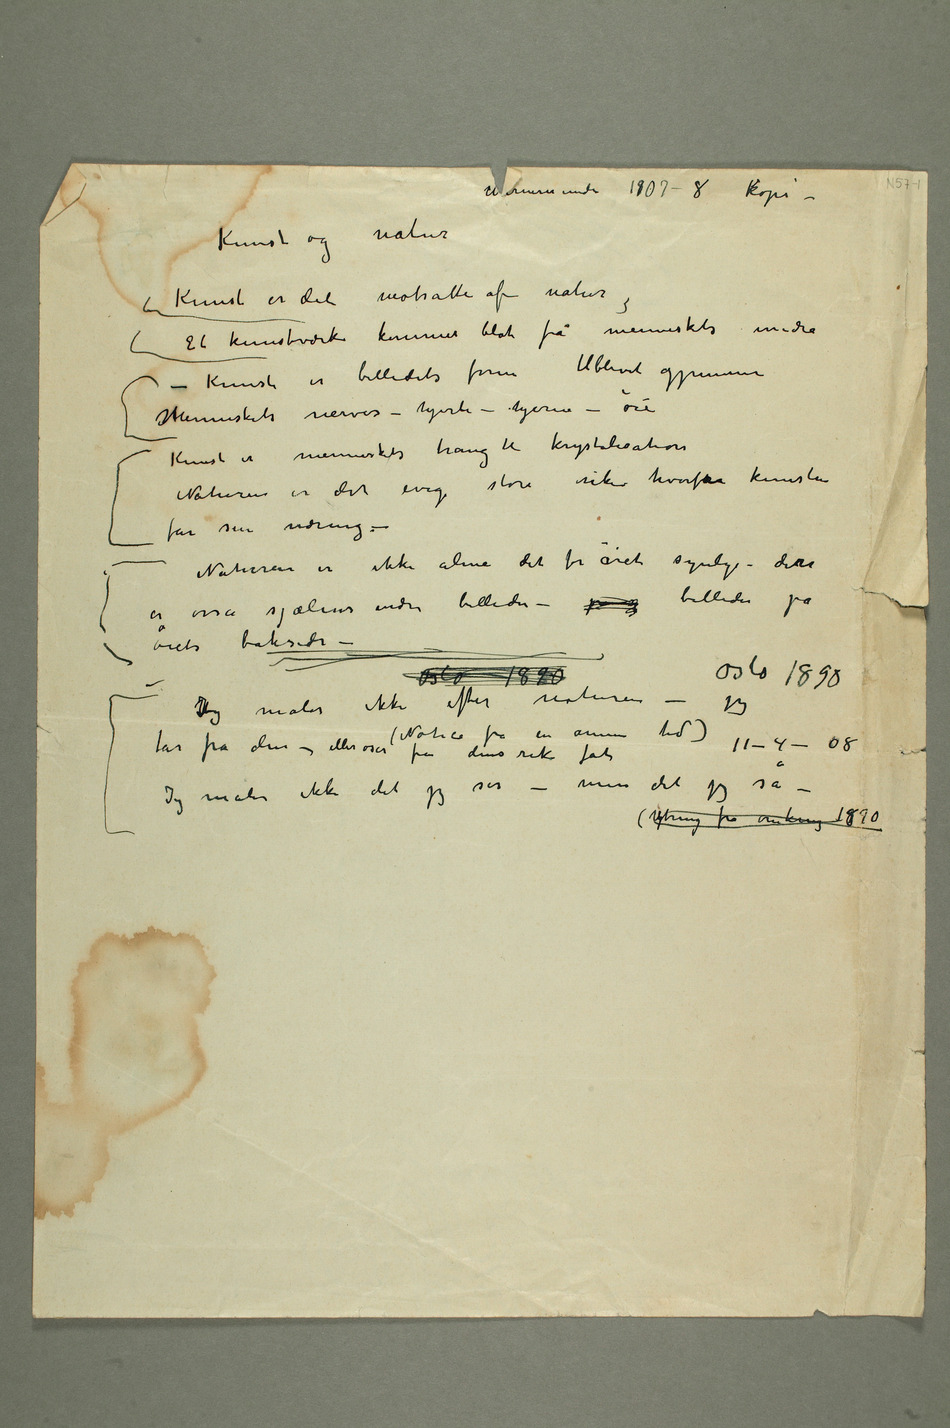 Warnemünde 1907–8 Kopi –
N57-1
Kunst og natur
Kunst er det motsatte af natur
Et kunstværk kommer blot fra menneskets indre
– Kunst er billedets form tilblivet gjennem
Menneskets nerver – hjerte – hjerne – öie
Kunst er menneskets trang til krystalisation
Naturen er det evig store rike hvorfra kunsten
får sin næring –
Naturen er ikke alene det for öiet synlige – det
er også sjælens indre billeder – billeder på
öiets bakside –
Oslo 1890 Oslo 1898
Jeg maler ikke efter naturen – jeg
(Notice fra en annen tid) 11–4–08
tar fra den – eller öser fra dens rike fat
Jeg maler ikke det jeg ser – men det jeg så –
(Ytring fra omkring 1890